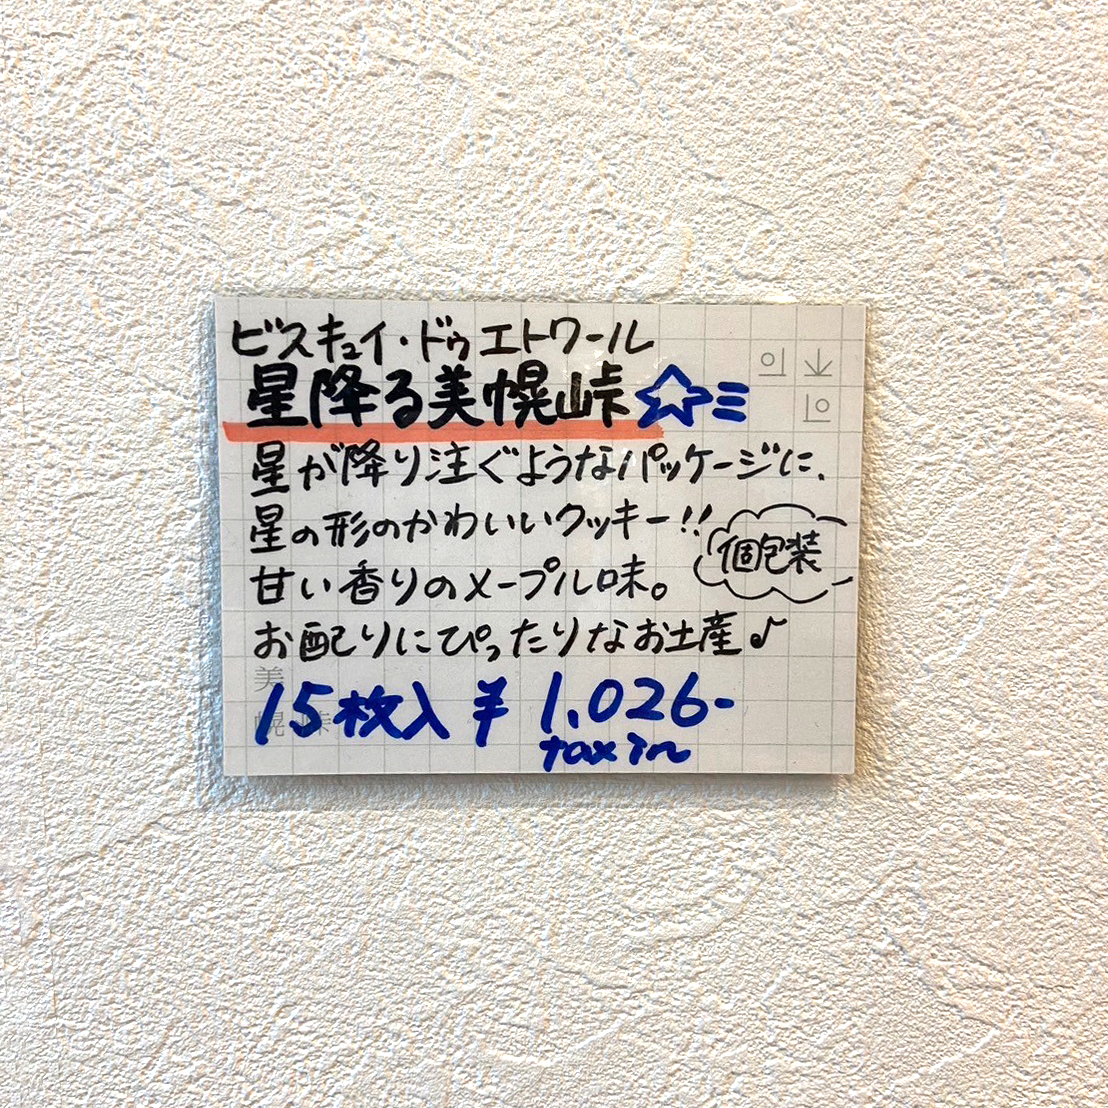 ビスキュイ・ドゥ エトワール
星降る美幌峠☆ミ
星が降り注ぐようなパッケージに、
星の形のかわいいクッキー!!
個包装
甘い香りのメープル味。
お配りにぴったりなお土産♪
美
幌 峠
15枚入 ¥1,026-
tax in